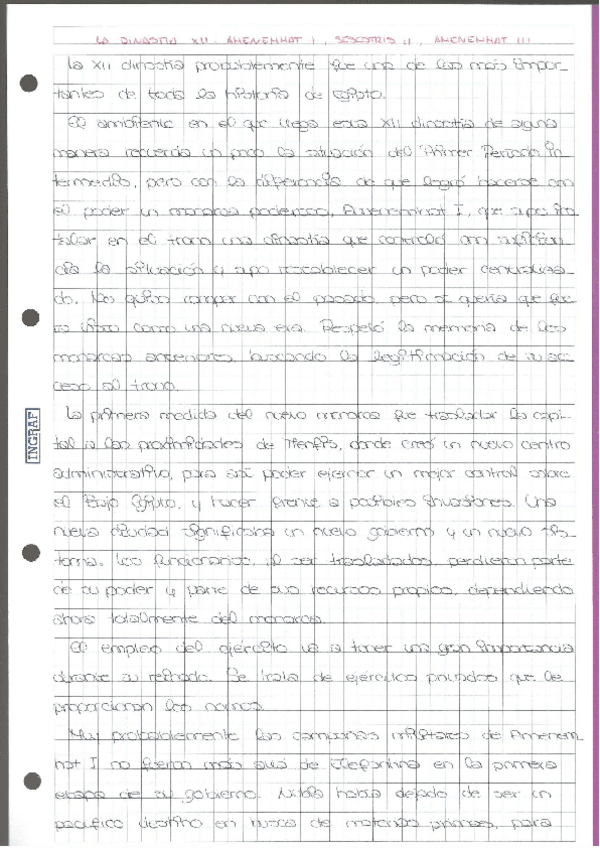 LA DINASTIA XII. AMENEMHAT I, SESOSTRIS II, AMENEMHAT III
La XII dinastía probablemente fue una de las más impor-
tantes de toda la historia de Egipto.
El ambiente en el que llega esta XII dinastía de alguna
manera recuerda un poco la situación del Primer Periodo In
termedio, pero con la diferencia de que logró hacerse con
el poder un monarca poderoso, Amenemhat I, que supo ins
talar en el trono una dinastía que controló con suficien
cia la situación y supo restablecer un poder centraliza-
do. No quiso romper con el pasado, pero sí quería que fue
ra visto como una nueva era. Respetó la memoria de los
monarcas anteriores, buscando la legitimación de su ac
ceso al trono.
La primera medida del nuevo monarca fue trasladar la capi-
tal a las proximidades de Menfis, donde creó un nuevo centro
administrativo, para así poder ejercer un mejor control sobre
el Bajo Egipto, y hacer frente a posibles invasiones. Una
nueva ciudad significaba un nuevo gobierno y un nuevo sis
tema. Los funcionarios, al ser trasladados, perdieron parte
de su poder y parte de sus recursos propios, dependiendo
ahora totalmente del monarca.
El empleo del ejército va a tener una gran importancia
durante su reinado. Se trata de ejércitos privados que le
proporcionan los nomos.
Muy probablemente las campañas militares de Amenem
hat I no fueron más allá de Elefantina en la primera
etapa de su gobierno. Nubia había dejado de ser un
pacífico destino en busca de materias primas, para
INGRAF